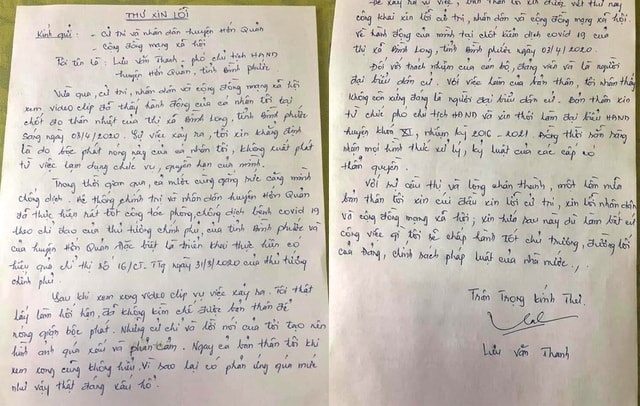 THƯ XIN LỖI
Kính gửi: - Cử tri và nhân dân huyện Hớn Quản
- Cộng đồng mạng xã hội
Tôi tên là: Lưu Văn Thanh, phó chủ tịch HĐND
huyện Hớn Quản, tỉnh Bình Phước
Vừa qua, cử tri, nhân dân và cộng đồng mạng xã hội
xem video clip đã thấy hành động của cá nhân tôi tại
chốt đo thân nhiệt của thị xã Bình Long, tỉnh Bình Phước
sáng ngày 03/4/2020. Sự việc xảy ra, tôi xin khẳng định
là do bộc phát nóng nảy của cá nhân tôi, không xuất phát
từ việc lạm dụng chức vụ, quyền hạn của mình.
Trong thời gian qua, cả nước cùng gắng sức căng mình
chống dịch. Hệ thống chính trị và nhân dân huyện Hớn Quản
đã thực hiện rất tốt công tác phòng, chống dịch bệnh covid 19
theo chỉ đạo của thủ tướng chính phủ, của tỉnh Bình Phước và
của huyện Hớn Quản. Đặc biệt là triển khai thực hiện có
hiệu quả chỉ thị số 16/CT.TTg ngày 31/3/2020 của thủ tướng
chính phủ.
Sau khi xem xong video clip vụ việc xảy ra. Tôi thật
lấy làm hối hận, đã không kìm chế được bản thân để
nóng giận bộc phát. Những cử chỉ và lời nói của tôi tạo nên
hình ảnh quá xấu và phản cảm. Ngay cả bản thân tôi khi
xem xong cũng không hiểu. Vì sao lại có phản ứng quá mức
như vậy thật đáng xấu hổ.
Để xảy ra vụ việc, bản thân tôi xin được viết thư này
công khai xin lỗi cử tri, nhân dân và cộng đồng mạng xã hội.
Về hành động của mình tại chốt kiểm dịch covid 19 của
thị xã Bình Long, tỉnh Bình Phước ngày 03/4/2020.
Đối với trách nhiệm của cán bộ, đảng viên và là người
đại biểu dân cử. Với việc làm của bản thân, tôi nhận thấy
không còn xứng đáng là người đại biểu dân cử. Bản thân xin
từ chức phó chủ tịch HĐND và xin thôi làm đại biểu HĐND
huyện khóa XI, nhiệm kỳ 2016 - 2021. Đồng thời sẵn sàng
nhận mọi hình thức xử lý, kỷ luật của các cấp có
thẩm quyền.
Với sự cầu thị và lòng chân thành, một lần nữa
bản thân tôi xin cúi đầu xin lỗi cử tri, xin lỗi nhân dân
và cộng đồng mạng xã hội, xin hứa sau này dù làm bất cứ
công việc gì tôi sẽ chấp hành tốt chủ trương, đường lối
của Đảng, chính sách pháp luật của nhà nước./.
Trân Trọng kính Thư.
Lưu Văn Thanh